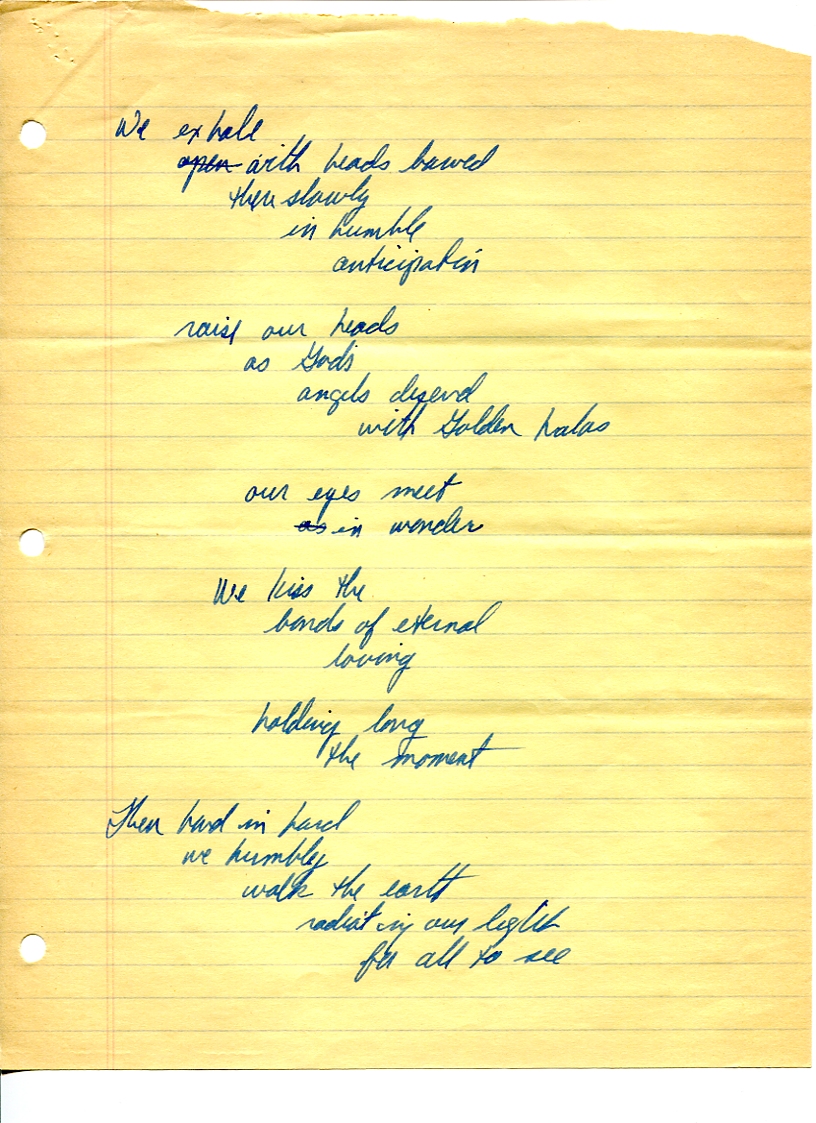 We exhale
open with heads bowed
then slowly
in humble
anticipation
raise our heads
as God's
angels descend
with Golden halos
our eyes meet
as in wonder
We kiss the
bonds of eternal
loving
holding long
the moment
Then hand in hand
we humbly
walk the earth
radiating our light
for all to see